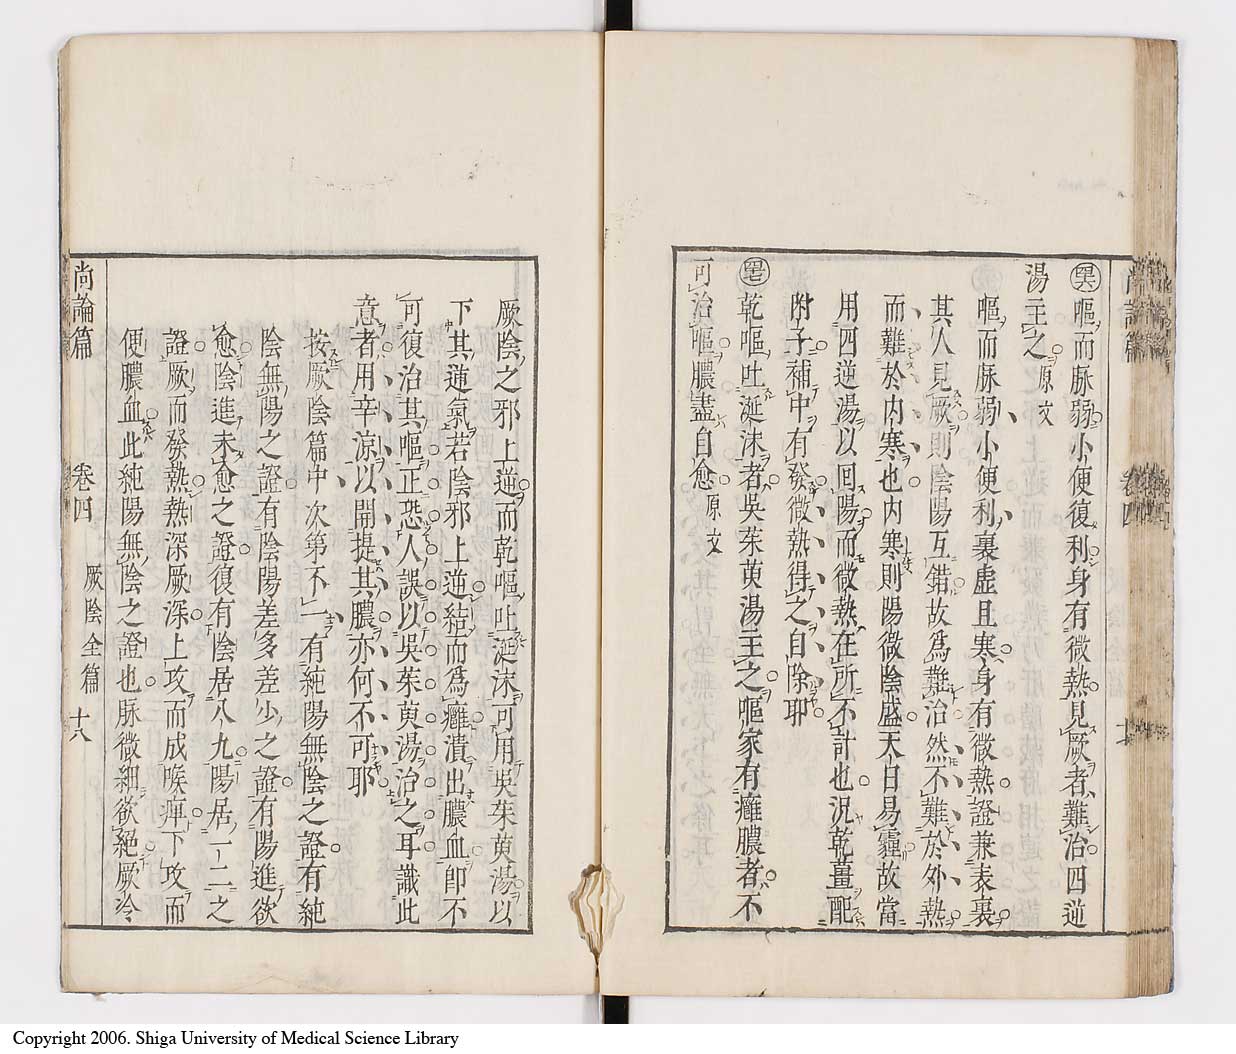 嘔而脉弱小便復利身有微熱見厥者難治四逆
湯主之原文
嘔而脉弱小便利裏虛且寒身有微熱證兼表裏
其人見厥則陰陽互錯故爲難治然不難於外熱
而難於内寒也内寒則陽微陰盛天日易霾故當
用四逆湯以回陽而微熱在所不計也況乾薑配
附子補中有發微熱得之自除耶
乾嘔吐涎沫者吳茱萸湯主之嘔家有癰膿者不
可治嘔膿盡自愈原文
厥陰之邪上逆而乾嘔吐涎沫可用吳茱萸湯以
下其逆氣若陰邪上逆結而爲癰潰出膿血即不
可復治其嘔正恐人誤以吳茱萸湯治之耳識此
意者用辛涼以開提其膿亦何不可耶
按厥陰篇中次第不一有純陽無陰之證有純
陰無陽之證有陰陽差多差少之證有陽進欲
愈陰進未愈之證復有陰居八九陽居一二之
證厥而發熱熱深厥深上攻而成喉痺下攻而
便膿血此純陽無陰之證也脉微細欲絕厥冷
尚論篇 卷四 厥陰全篇 十八
Copyright 2006. Shiga University of Medical Science Library